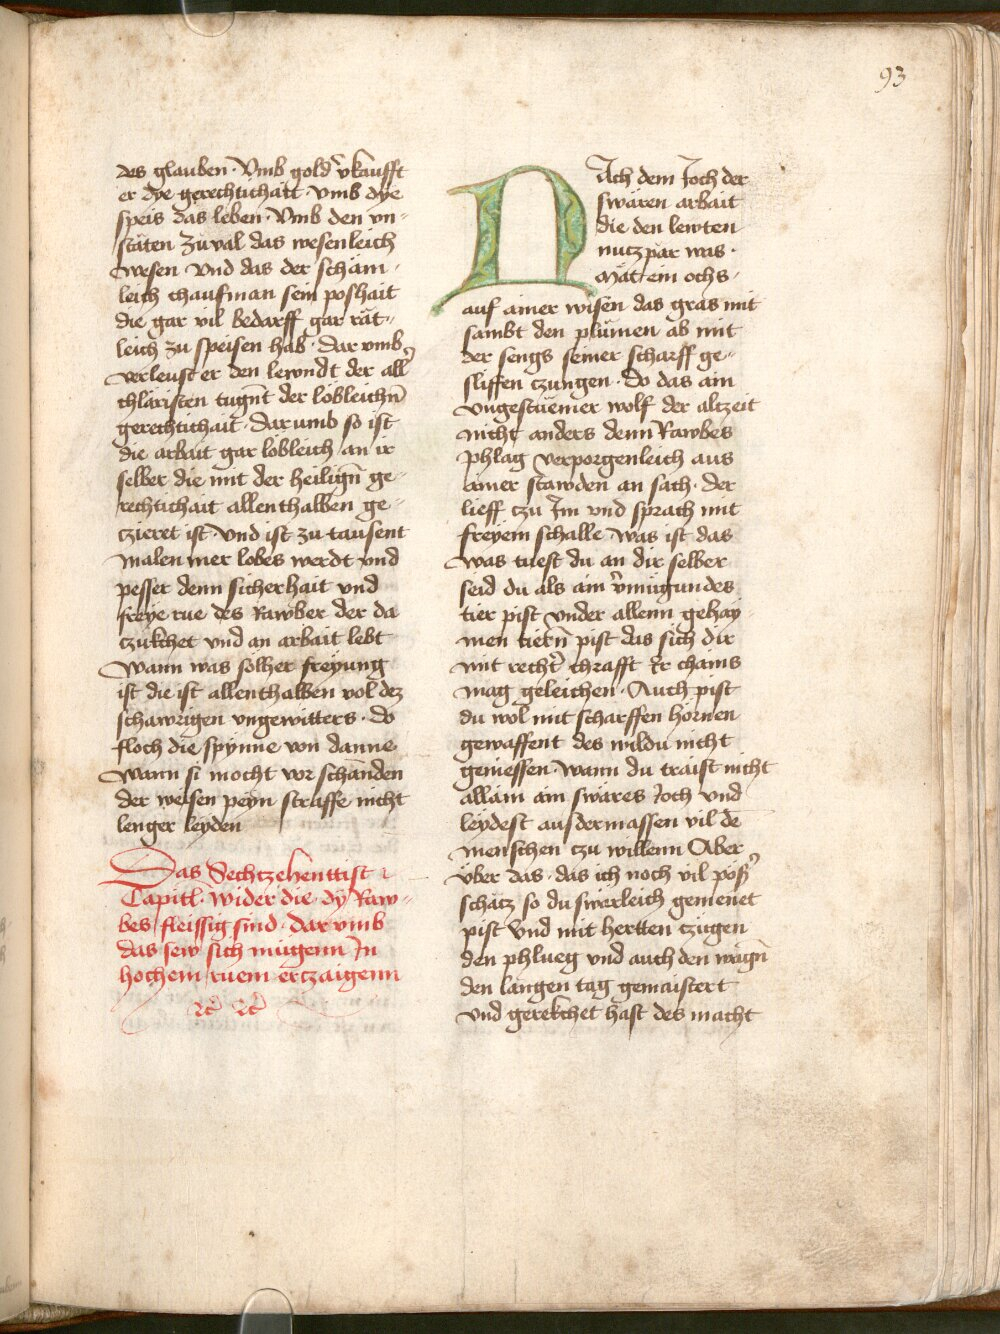 93
des glauben · Vmb gold v̄kaufft
er dye gerechtichait · vmb dye
speis das leben · Vmb den vn-
stäten zuval das wesenleich
wesen Vnd das der schäm-
leich chaufman sein poshait
die gar vil bedarff gar rät-
leich zu speisen hab · Dar vmb
verleust er den lewndt der all̄
chläristen tugn̄t der lobleichn̄
gerechtichait · Dar umb so ist
die arbait gar lobleich an ir
selber die mit der heilign̄ ge-
rechtichait allenthalben ge-
czieret ist · vnd ist zu tausent
malen mer lobes werdt vnd
pesser denn sicherhait vnd
freye rue des Rawber der da
czukchet vnd an arbait lebt
Wann was solher freyung
ist die ist allenthalben vol dez
schawrigen vngewitters · do
floch die spynne von danne
Wann si mocht vor schanden
der weisen peyn straffe nicht
lenger leyden
Das Sechtzehenttist
Capitl · wider die dÿ Raw-
bes fleissig sind · Dar vmb
das sew sich mügenn In
hochem ruem erczaigenn
ꝛc̄ ꝛc̄
NAch dem Joch der
swären arbait
die den lewten
nuczpär was ·
Mät ein ochs ·
auf ainer wisen das gras mit
sambt den plümen ab mit
der sengs seiner scharff ge-
sliffen czungen · Do das ain
vngestuemer wolf der alczeit
nicht anders denn Rawbes
phlag verporgenleich aus
ainer stawden an sach · der
lieff czu Im vnd sprach mit
freyem schalle was ist das
was tuest du an dir selber
seid du als ain v̄mügundes
tier pist vnder allenn gehay-
men tiern̄ pist das sich dir
mit recht̄ chrafft Er chains
mag geleichen · Auch pist
du wol mit scharffen hornen
gewaffent des wildu nicht
geniessen · Wann du traist nicht
allain ain swäres Joch vnd
leydest aus dermassen vil dē
menschen czu willenn Aber
über das · das ich noch vil pöß̄
schäcz so du swärleich gemenet
pist vnd mit hertten czügen
den phlueg vnd auch den wägn̄
den langen tag gemaistert
vnd gerekchet hast des macht